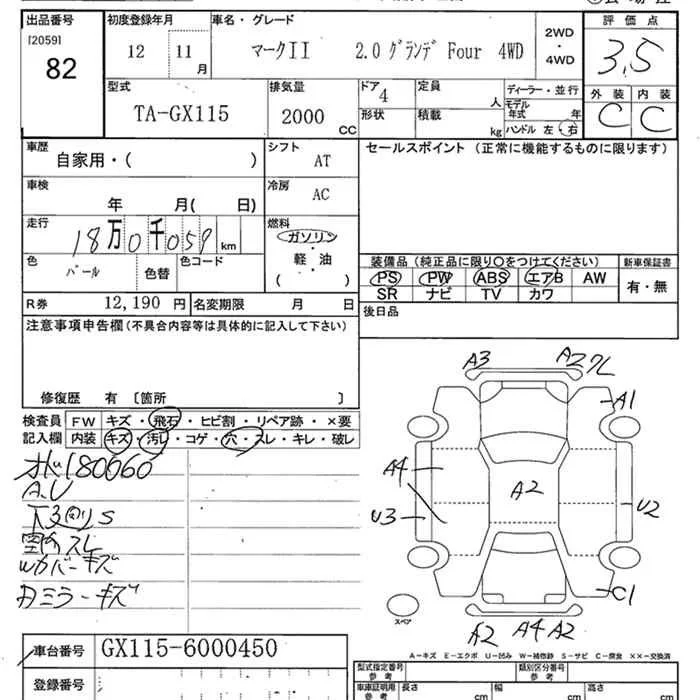 出品番号
[2059]
82
初度登録年月
12 11月
車名・グレード
マークII 2.0 グランデ Four 4WD
2WD
・
4WD
評価点
3,5
外装 内装
C C
型式
TA-GX115
排気量
2000 CC
ドア
4
形状
定員
人
積載
kg
ディーラー・並行
モデル
年式 年
ハンドル 左・右
車歴
自家用・( )
シフト
AT
車検
年 月( 日)
冷房
AC
走行
18万0千059 km
燃料
ガソリン
軽・油
( )
色
パール
色替
色コード
R券 12,190 円
名変期限 月 日
セールスポイント (正常に機能するものに限ります)
装備品 (純正品に限り○をつけてください)
PS PW ABS エアB AW
SR ナビ TV カワ
新車保証書
有・無
後日品
注意事項申告欄 (不具合内容等は具体的に記入して下さい)
修復歴 有 [箇所 ]
検査員
記入欄
FW キズ・飛石・ヒビ割・リペア跡・×要
内装 キズ・汚レ・コゲ・穴・スレ・キレ・破レ
180060
A.U
下回りS
スレ
Wカバーキズ
ミラーキズ
A3 A2
A1
A4
A2
U3
U2
C1
A2 A4 A2
スペア
A-キズ E-エクボ U-凹み W-補修跡 S-サビ C-腐食 XX-交換済
車台番号 GX115-6000450
登録番号
型式指定番号
参考
類別区分番号
参考
車庫証明用
参考
長さ cm
幅 cm
高さ cm